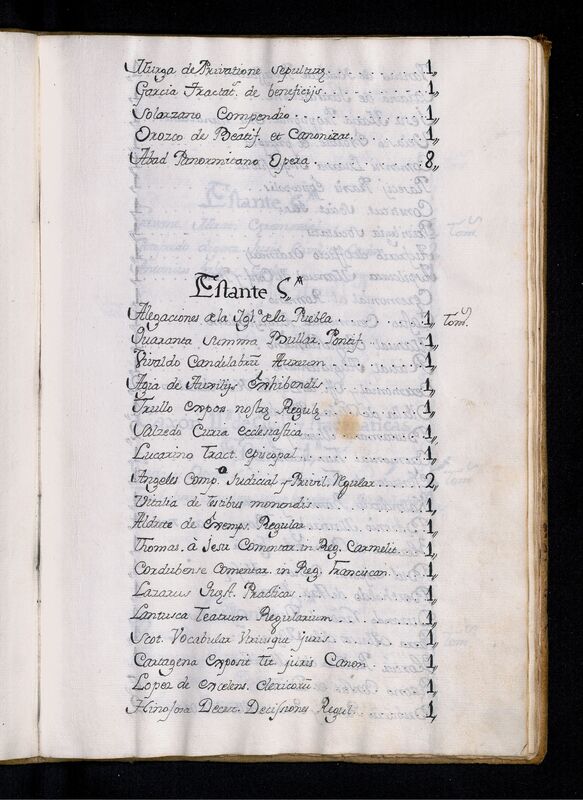 Murga de Privatione sepulturę . . . 1,,
Garcia Tractat. de beneficijs . . . 1,,
Solarzano Compendio . . . 1,,
Orozco de Beatif. et Canonizat. . . . 1,,
Abad Panormitano Opera . . . 8,,
Estante 5,,ᴬ
Alegaciones de la Iglª. de la Puebla . . . 1,, Tomˢ.
Quaranta Summa Bullar. Pontif. . . . 1,,
Vivaldo Candelabrū Aureum . . . 1,,
Agia de Auxilijs Exhibendis . . . 1,,
Trullo expos. nostrę Regulę . . . 1,,
Salzedo Curia ecclesiastica . . . 1,,
Lucarino Tract. episcopal . . . 1,,
Angeles Comp.º Judicial y Privil. Regular . . . 2,,
Vitalia de testibus monendis . . . 1,,
Aldrete de Exemps. Regular . . . 1,,
Thomas. à Jesu Comentar. in Reg. Carmelit. . . . 1,,
Cordubense Comentar. in Reg. Franciscan. . . . 1,,
Lazarus Quęst. Practicas . . . 1,,
Lantusca Teatrum Regularium . . . 1,,
Scot. Vocabular Utriusque juris . . . 1,,
Cartagena exposit. tit. juris Canon. . . . 1,,
Lopez de excelens. Clericorū . . . 1,,
Hinojosa Decret. Decissiones Regul. . . . 1,,